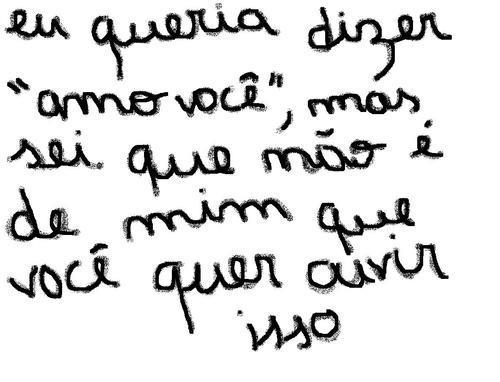 eu queria dizer
"amo você", mas
sei que não é
de mim que
você quer ouvir
isso